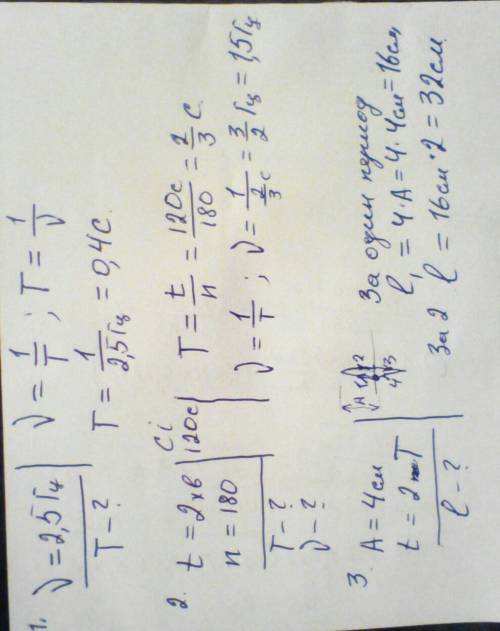 1. ν = 2,5 Гц | ν = 1/T ; T = 1/ν
T - ? T = 1/2,5 Гц = 0,4 с.
Сі
2. t = 2 хв | 120с | T = t/n = 120с/180 = 2/3 с.
n = 180
T - ? ν = 1/T ; ν = 1/(2/3 с) = 3/2 Гц = 1,5 Гц
ν - ?
3. A = 4 см За один период
t = 2 T l₁ = 4·A = 4·4см = 16см,
l - ? За 2 l = 16см·2 = 32см
A 1 2
4 3